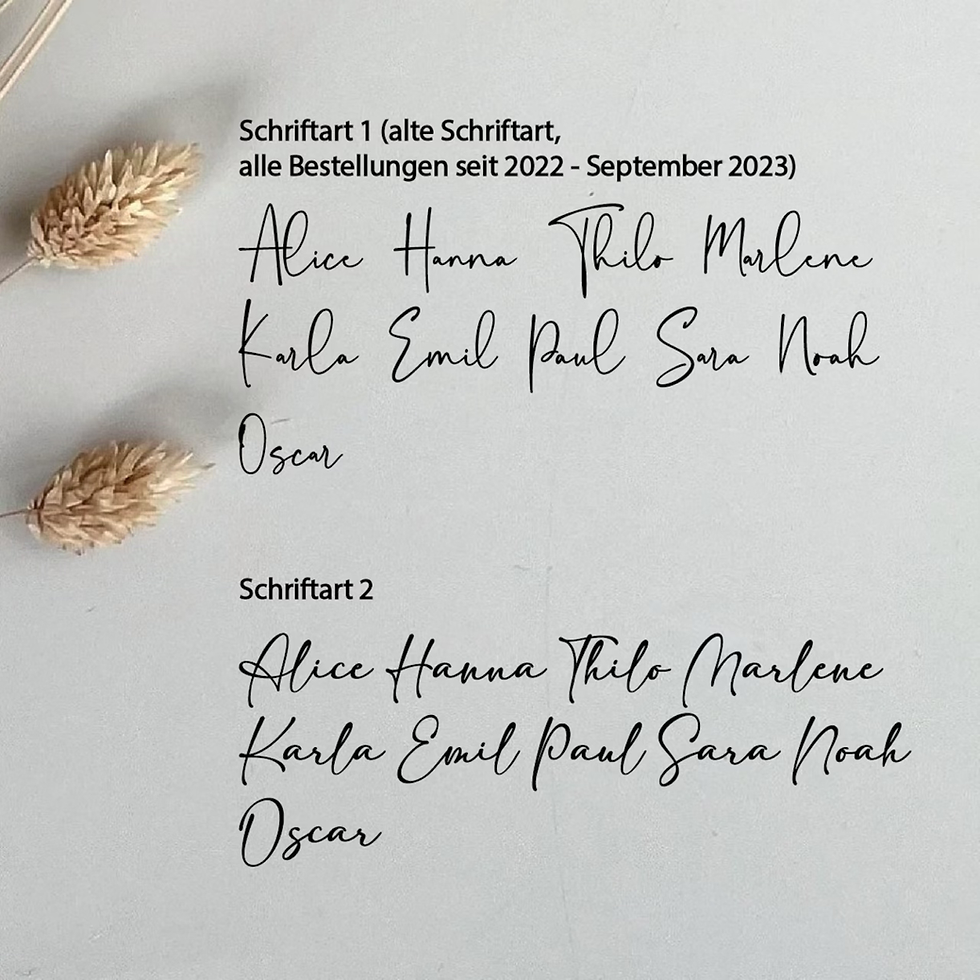 Schriftart 1 (alte Schriftart,
alle Bestellungen seit 2022 - September 2023)
Alice Hanna Thilo Marlene
Karla Emil Paul Sara Noah
Oscar
Schriftart 2
Alice Hanna Thilo Marlene
Karla Emil Paul Sara Noah
Oscar